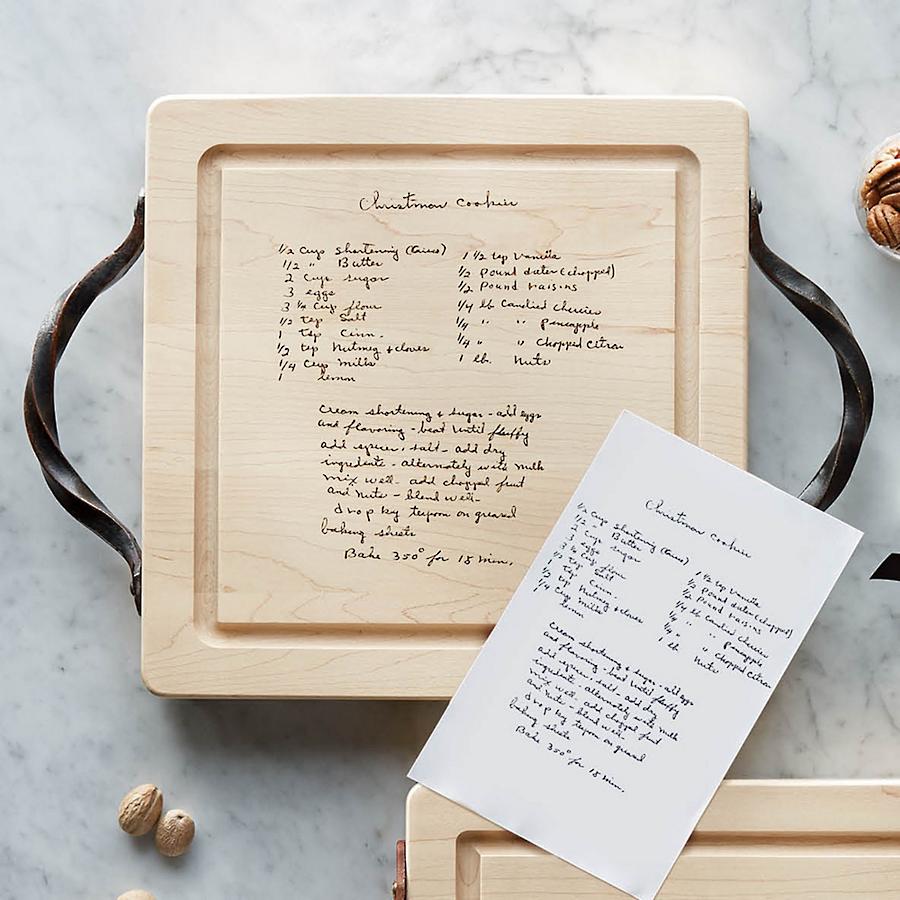 Christmas Cookies
1/2 Cup Shortening (Crisco)
1/2 " Butter
2 Cups sugar
3 eggs
3 1/4 Cup flour
1/2 tsp Salt
1 tsp Cinn.
1/2 tsp Nutmeg & cloves
1/4 Cup Milk
1 lemon
1 1/2 tsp Vanilla
1/2 Pound dates (chopped)
1/2 Pound raisins
1/4 lb Candied Cherries
1/4 " " pineapple
1/4 " " Chopped Citron
1 lb. Nuts
Cream shortening & sugar - add eggs
and flavoring - beat until fluffy
add spices, salt - add dry
ingredients - alternately with milk
mix well - add chopped fruit
and nuts - blend well -
drop by teaspoon on greased
baking sheets
Bake 350° for 15 min.
Christmas Cookies
1/2 Cup Shortening (Crisco)
1/2 " Butter
2 Cups sugar
3 eggs
3 1/4 Cup flour
1/2 tsp Salt
1 tsp Cinn.
1/2 tsp Nutmeg & cloves
1/4 Cup Milk
1 lemon
1 1/2 tsp Vanilla
1/2 Pound dates (chopped)
1/2 Pound raisins
1/4 lb Candied Cherries
1/4 " " pineapple
1/4 " " Chopped Citron
1 lb Nuts
Cream shortening & sugar - add eggs
and flavoring - beat until fluffy
add spices, salt - add dry
ingredients - alternately with milk
mix well - add chopped fruit
and nuts - blend well -
drop by teaspoon on greased
baking sheets
Bake 350° for 15 min.